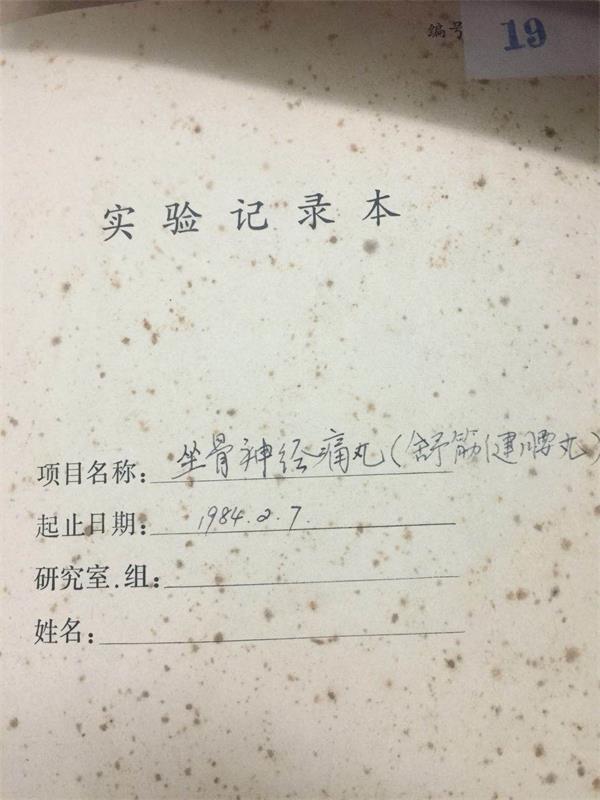 编号 19
实验记录本
项目名称：坐骨神经痛丸（舒筋健腰丸）
起止日期：1984.2.7.
研究室.组：
姓名：